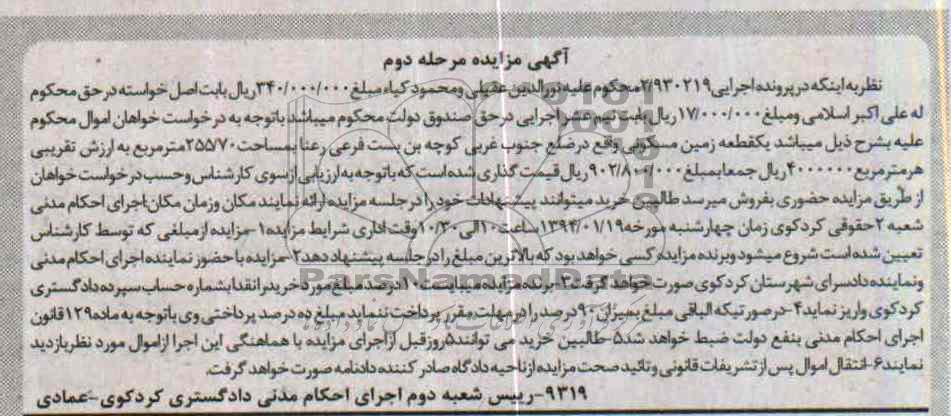 آگهی مزایده مرحله دوم
نظر به اینکه در پرونده اجرایی ۲/۹۳۰۲۱۹ محکوم علیه نورالدین عقیلی ومحمود کیاء مبلغ ۳۴۰/۰۰۰/۰۰۰ریال بابت اصل خواسته در حق محکوم
له علی اکبر اسلامی ومبلغ ۱۷/۰۰۰/۰۰۰ ریال بابت نیم عشر اجرایی در حق صندوق دولت محکوم میباشد باتوجه به درخواست خواهان اموال محکوم
علیه بشرح ذیل میباشد یکقطعه زمین مسکونی واقع در ضلع جنوب غربی کوچه بن بست فرعی رعنا بمساحت ۲۵۵/۷۰مترمربع به ارزش تقریبی
هر مترمربع ۴۰۰۰۰۰۰ ریال جمعا بمبلغ ۹۰۲/۸۰۰/۰۰۰ ریال قیمت گذاری شده است که باتوجه به ارزیابی از سوی کارشناس وحسب درخواست خواهان
از طریق مزایده حضوری بفروش میرسد طالبین خرید میتوانند پیشنهادات خود را در جلسه مزایده ارائه نمایند مکان وزمان مکان:اجرای احکام مدنی
شعبه ۲حقوقی کردکوی زمان چهارشنبه مورخه ۱۳۹۴/۰۱/۱۹ساعت ۱۰الی ۱۰/۳۰وقت اداری شرایط مزایده۱-مزایده از مبلغی که توسط کارشناس
تعیین شده است شروع میشود وبرنده مزایده کسی خواهد بود که بالاترین مبلغ را در جلسه پیشنهاد دهد۲-مزایده با حضور نماینده اجرای احکام مدنی
ونماینده دادسرای شهرستان کردکوی صورت خواهد گرفت۳-برنده مزایده میبایست ۱۰درصد مبلغ مورد خرید را نقدا بشماره حساب سپرده دادگستری
کردکوی واریز نماید۴-درصورتیکه الباقی مبلغ بمیزان ۹۰درصد را در مهلت مقرر پرداخت ننماید مبلغ ده درصد پرداختی وی باتوجه به ماده ۱۲۹قانون
اجرای احکام مدنی بنفع دولت ضبط خواهد شد۵-طالبین خرید می توانند۵روز قبل از اجرای مزایده با هماهنگی این اجرا از اموال مورد نظر بازدید
نمایند۶-انتقال اموال پس از تشریفات قانونی وتائید صحت مزایده از ناحیه دادگاه صادر کننده دادنامه صورت خواهد گرفت.
۹۳۱۹-رییس شعبه دوم اجرای احکام مدنی دادگستری کردکوی-عمادی
ParsNamadData